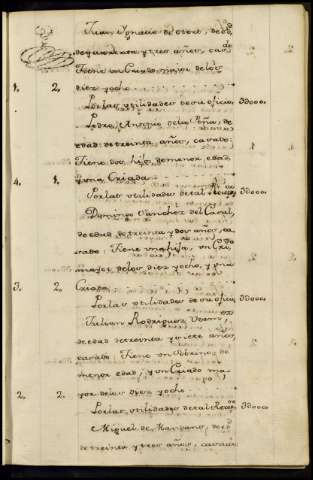 Juan Ygnacio de de edad
de quarenta y tres años, casado
Tiene un Criado maior de los
1, 2, diez y ocho
Por las utilidades de su oficio, 3000..
Pedro Antonio de la Peña, de
edad de treinta años, casado:
Tiene dos hijos de menor edad
4. 1, y una Criada
Por las utilidades de tal 3000..
Domingo Sanchez del Corral,
de edad de treinta y dos años, ca-
sado: Tiene una hija, un Criado
mayor de los diez y ocho, y una
3. 2, Criada
Por las utilidades de su oficio, 3000..
Julian Rodriguez
de edad de treinta y siete años,
casado: Tiene un Sobrino de
menor edad, y un Criado ma-
yor de los diez y ocho
2, 2. Por las utilidades de tal 3000..
Miguel de Manzano, de edad
de treinta y tres años, casado